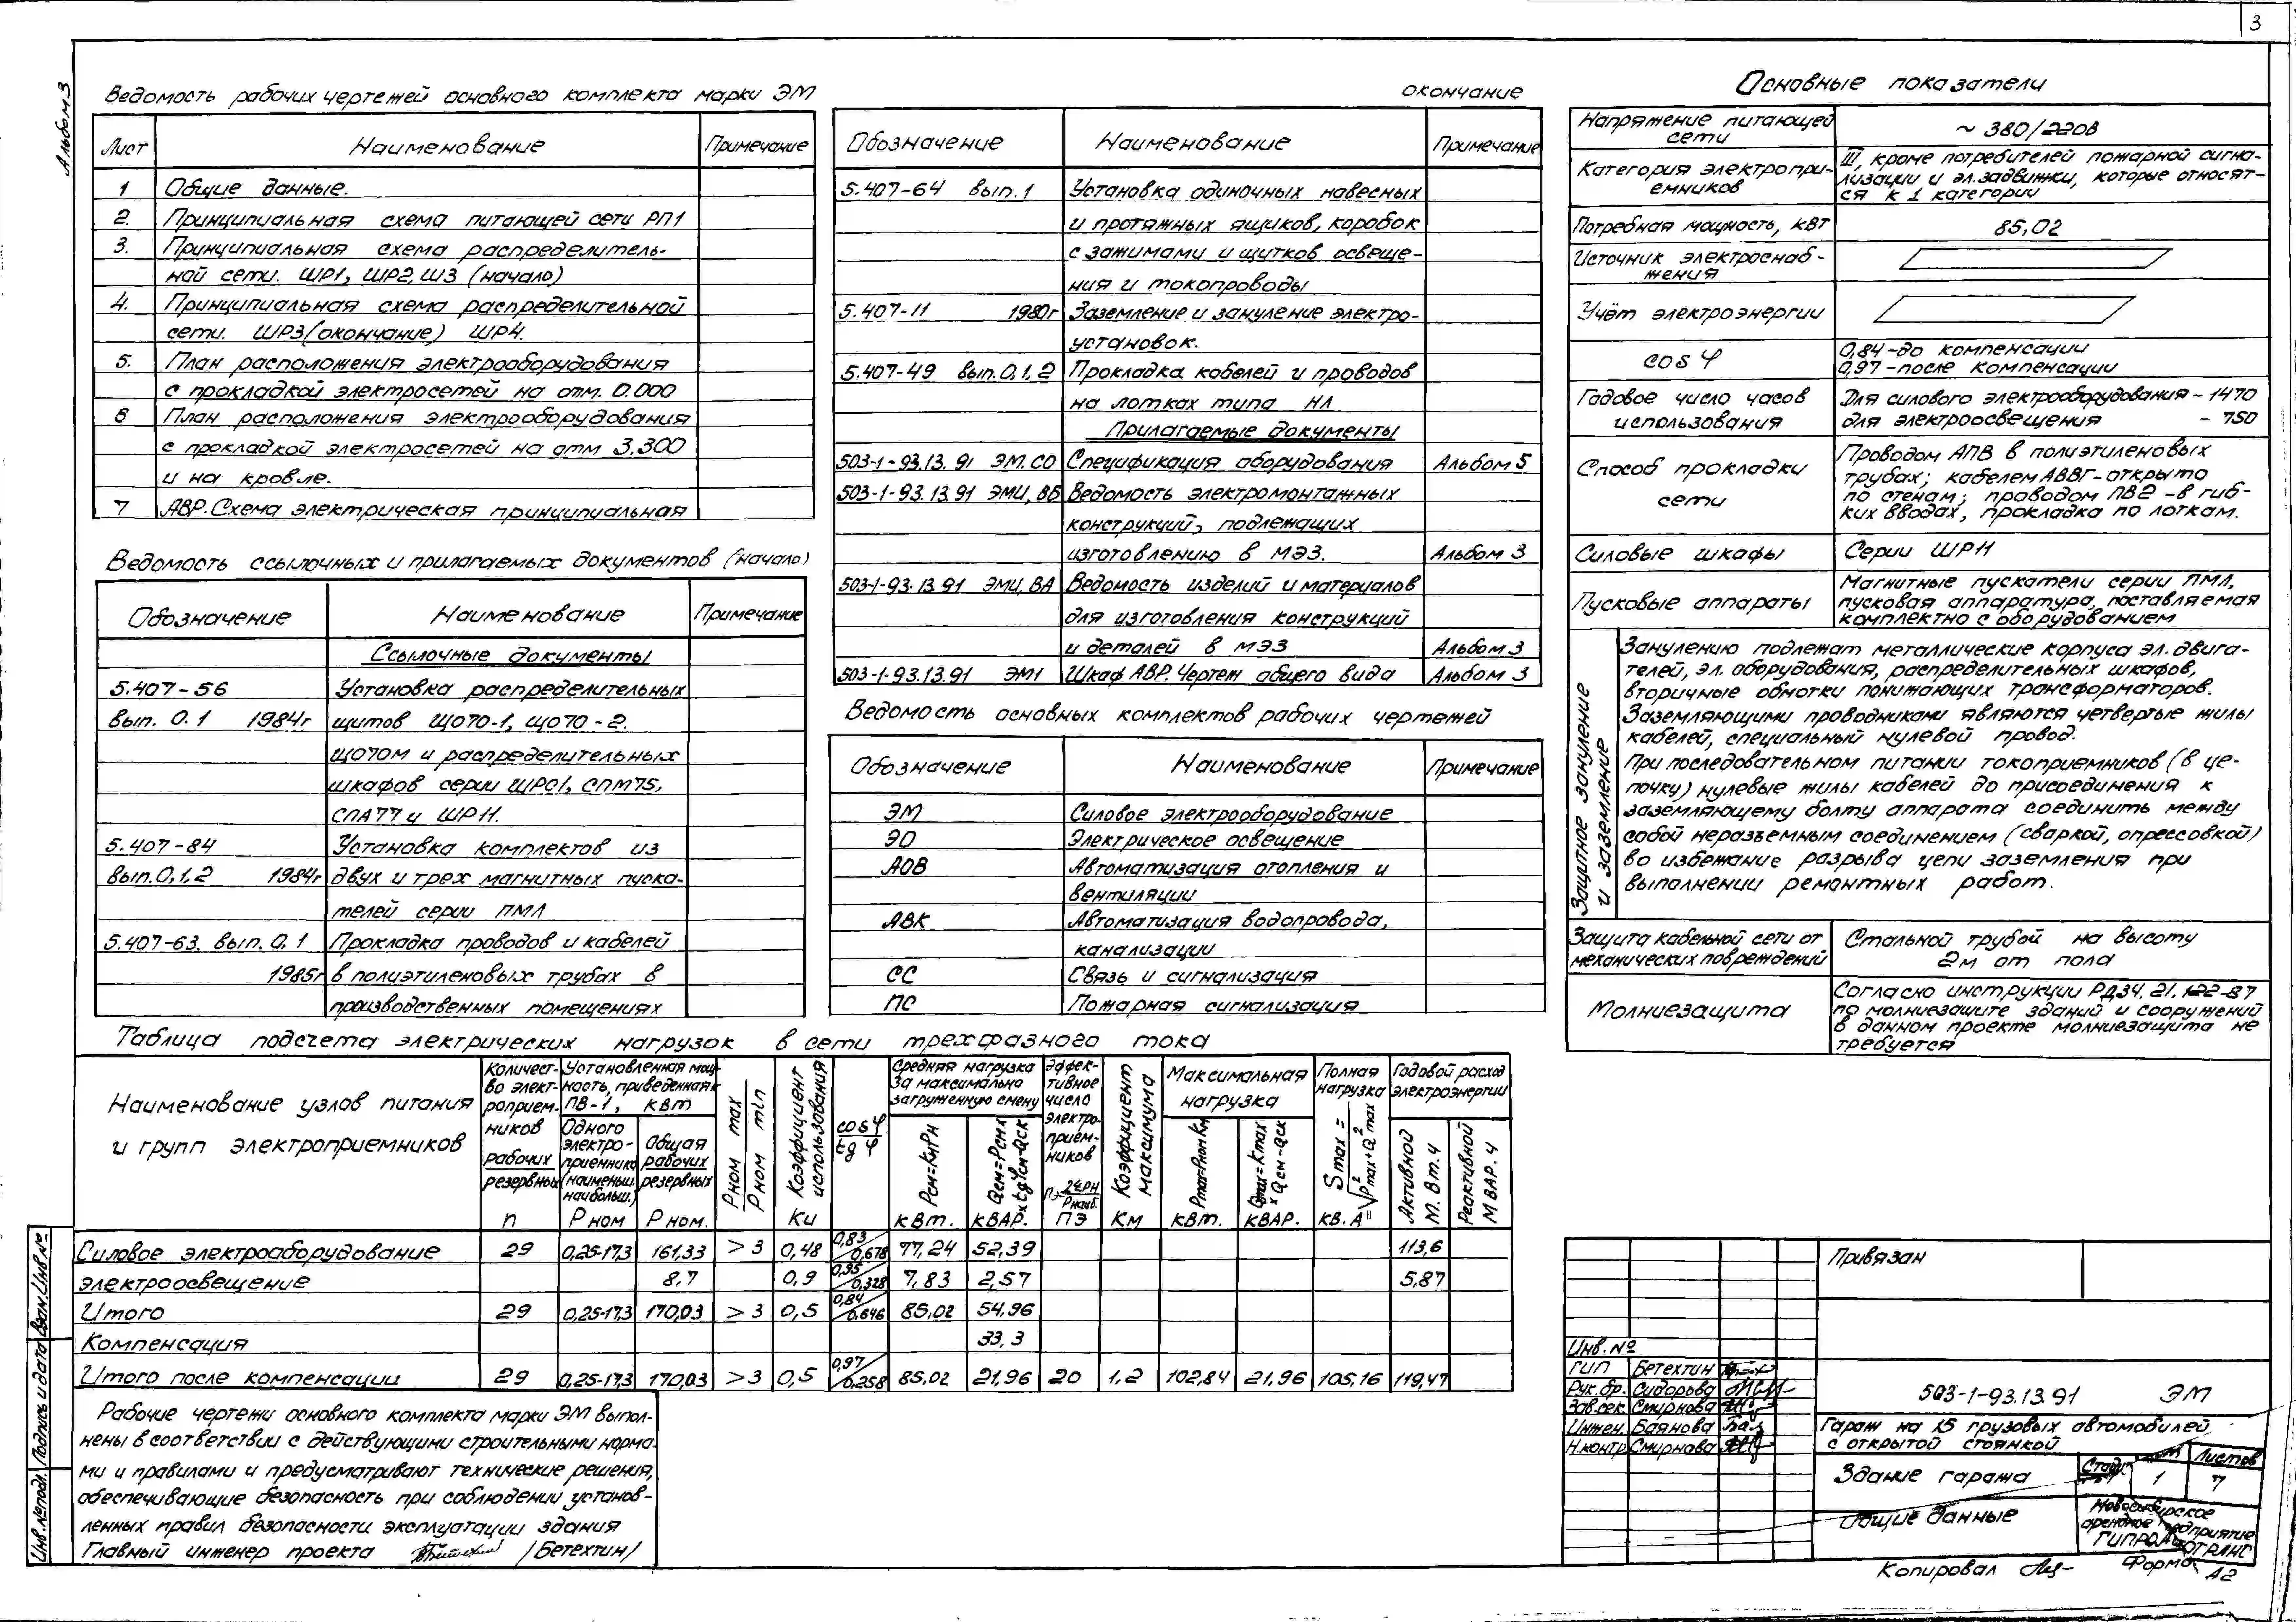 3
Альбом 3
Ведомость рабочих чертежей основного комплекта марки ЭМ
Лист Наименование Примечание
1 Общие данные.
2. Принципиальная схема питающей сети РП1
3. Принципиальная схема распределитель-
ной сети. ШР1, ШР2, Ш3 (начало)
4. Принципиальная схема распределительной
сети. ШР3 (окончание) ШР4.
5. План расположения электрооборудования
с прокладкой электросетей на отм. 0.000
6 План расположения электрооборудования
с прокладкой электросетей на отм 3.300
и на кровле.
7 АВР. Схема электрическая принципиальная
Ведомость ссылочных и прилагаемых документов (начало)
Обозначение Наименование Примечание
Ссылочные документы
5.407-56 Установка распределительных
вып. 0.1 1984г щитов ЩО70-1, ЩО70-2.
ЩО70М и распределительных
шкафов серии ШРС1, СПМ75,
СПА77 и ШР11.
5.407-84 Установка комплектов из
вып. 0,1,2 1984г двух и трех магнитных пуска-
телей серии ПМЛ
5.407-63. вып. 0,1 Прокладка проводов и кабелей
1985г в полиэтиленовых трубах в
производственных помещениях
окончание
Обозначение Наименование Примечание
5.407-64 вып. 1 Установка одиночных навесных
и протяжных ящиков, коробок
с зажимами и щитков освеще-
ния и токопроводы
5.407-11 1980г Заземление и зануление электро-
установок.
5.407-49 вып. 0,1,2 Прокладка кабелей и проводов
на лотках типа НЛ
Прилагаемые документы
503-1-93.13.91 ЭМ.СО Спецификация оборудования Альбом 5
503-1-93.13.91 ЭМИ, ВБ Ведомость электромонтажных
конструкций, подлежащих
изготовлению в МЭЗ. Альбом 3
503-1-93.13.91 ЭМИ, ВА Ведомость изделий и материалов
для изготовления конструкций
и деталей в МЭЗ Альбом 3
503-1-93.13.91 ЭМ1 Шкаф АВР. Чертеж общего вида Альбом 3
Ведомость основных комплектов рабочих чертежей
Обозначение Наименование Примечание
ЭМ Силовое электрооборудование
ЭО Электрическое освещение
АОВ Автоматизация отопления и
вентиляции
АВК Автоматизация водопровода,
канализации
СС Связь и сигнализация
ПС Пожарная сигнализация
Основные показатели
Напряжение питающей сети ~ 380/220В
Категория электропри-
емников III, кроме потребителей пожарной сигна-
лизации и эл. задвижки, которые относят-
ся к 1 категории
Потребная мощность, кВт 85,02
Источник электроснаб-
жения
Учёт электроэнергии
cos φ 0,84 - до компенсации
0,97 - после компенсации
Годовое число часов Для силового электрооборудования - 1470
использования для электроосвещения - 750
Способ прокладки
сети Проводом АПВ в полиэтиленовых
трубах; кабелем АВВГ - открыто
по стенам; проводом ПВ2 - в гиб-
ких вводах, прокладка по лоткам.
Силовые шкафы Серии ШР11
Пусковые аппараты Магнитные пускатели серии ПМЛ,
пусковая аппаратура, поставляемая
комплектно с оборудованием
Защитное зануление
и заземление
Занулению подлежат металлические корпуса эл. двига-
телей, эл. оборудования, распределительных шкафов,
вторичные обмотки понижающих трансформаторов.
Заземляющими проводниками являются четвертые жилы
кабелей, специальный нулевой провод.
При последовательном питании токоприемников (в це-
почку) нулевые жилы кабелей до присоединения к
заземляющему болту аппарата соединить между
собой неразъемным соединением (сваркой, опрессовкой)
во избежание разрыва цепи заземления при
выполнении ремонтных работ.
Защита кабельной сети от Стальной трубой на высоту
механических повреждений 2м от пола
Молниезащита Согласно инструкции РД34.21.122-87
по молниезащите зданий и сооружений
в данном проекте молниезащита не
требуется
Таблица подсчета электрических нагрузок в сети трехфазного тока
Наименование узлов питания
и групп электроприемников
Количест-
во элект-
роприем-
ников
рабочих
резервных
n
Установленная мощ-
ность, приведенная к
ПВ-1, кВт
Одного
электро-
приемника
(наименьш.
наибольш.)
Р ном
Общая
рабочих
резервных
Р ном.
Р ном max
Р ном min
Коэффициент
использования
Ки
cos φ
tg φ
Средняя нагрузка
за максимально
загруженную смену
Рсм=КиРн
кВт.
Qсм=Рсм×
×tgφсм-Qск
кВАР.
Эффек-
тивное
число
электро-
прием-
ников
ПЭ
Коэффициент
максимума
Км
Максимальная
нагрузка
Рmax=Рном Км
кВт.
Qmax=Kmax
×Qсм-Qск
кВАР.
Полная
нагрузка
Smax =
=√P²max+Q²max
кв. А
Годовой расход
электроэнергии
Активной
М. Вт. ч
Реактивной
М ВАР. ч
Силовое электрооборудование 29 0,25-17,3 161,33 >3 0,48 0,83/0,678 77,24 52,39 113,6
электроосвещение 8,7 0,9 0,95/0,328 7,83 2,57 5,87
Итого 29 0,25-17,3 170,03 >3 0,5 0,84/0,646 85,02 54,96
Компенсация 33,3
Итого после компенсации 29 0,25-17,3 170,03 >3 0,5 0,97/0,258 85,02 21,96 20 1.2 102,84 21,96 105,16 119,47
Рабочие чертежи основного комплекта марки ЭМ выпол-
нены в соответствии с действующими строительными норма-
ми и правилами и предусматривают технические решения,
обеспечивающие безопасность при соблюдении установ-
ленных правил безопасности эксплуатации здания
Главный инженер проекта /Бетехтин/
Инв. № подл. Подпись и дата Взам. Инв №
Привязан
Инв. №
ГИП Бетехтин
Рук. бр. Сидорова
Зав. сек. Смирнова
Инжен. Баянова
Н. контр. Смирнова
503-1-93.13.91 ЭМ
Гараж на 15 грузовых автомобилей
с открытой стоянкой
Здание гаража
Листов
1 7
Общие данные
Новосибирское
арендное предприятие
Копировал
Формат А2